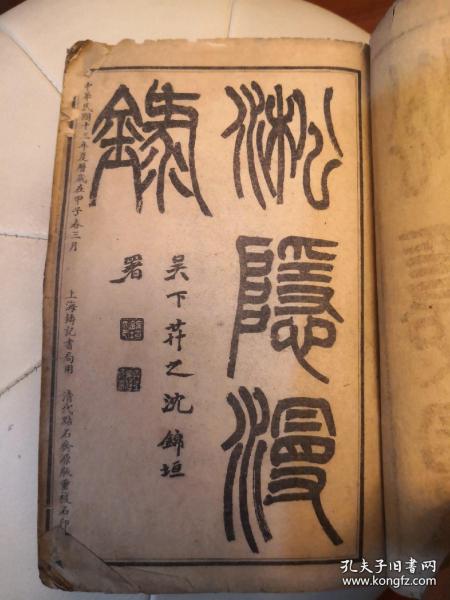 淞隱漫
錄
吴下荈之沈錦垣
署
中華民國十三年度曆歲在甲子春三月
上海鑄記書局用 清代點石齋原版重校石印
孔夫子旧书网
www.kongfz.com